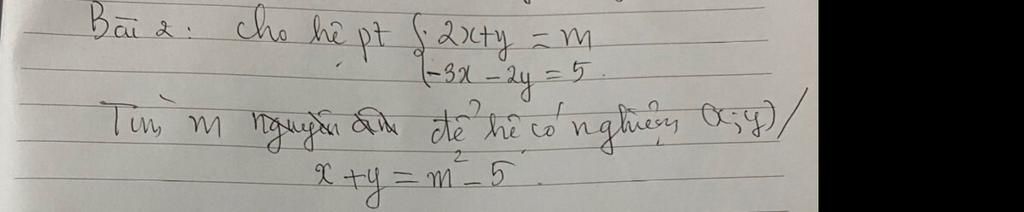 Bài 2: Cho hệ pt { 2x+y = m
-3x - 2y = 5.
Tìm m nguyên âm để hệ có nghiệm (x;y)/
x + y = m² - 5.